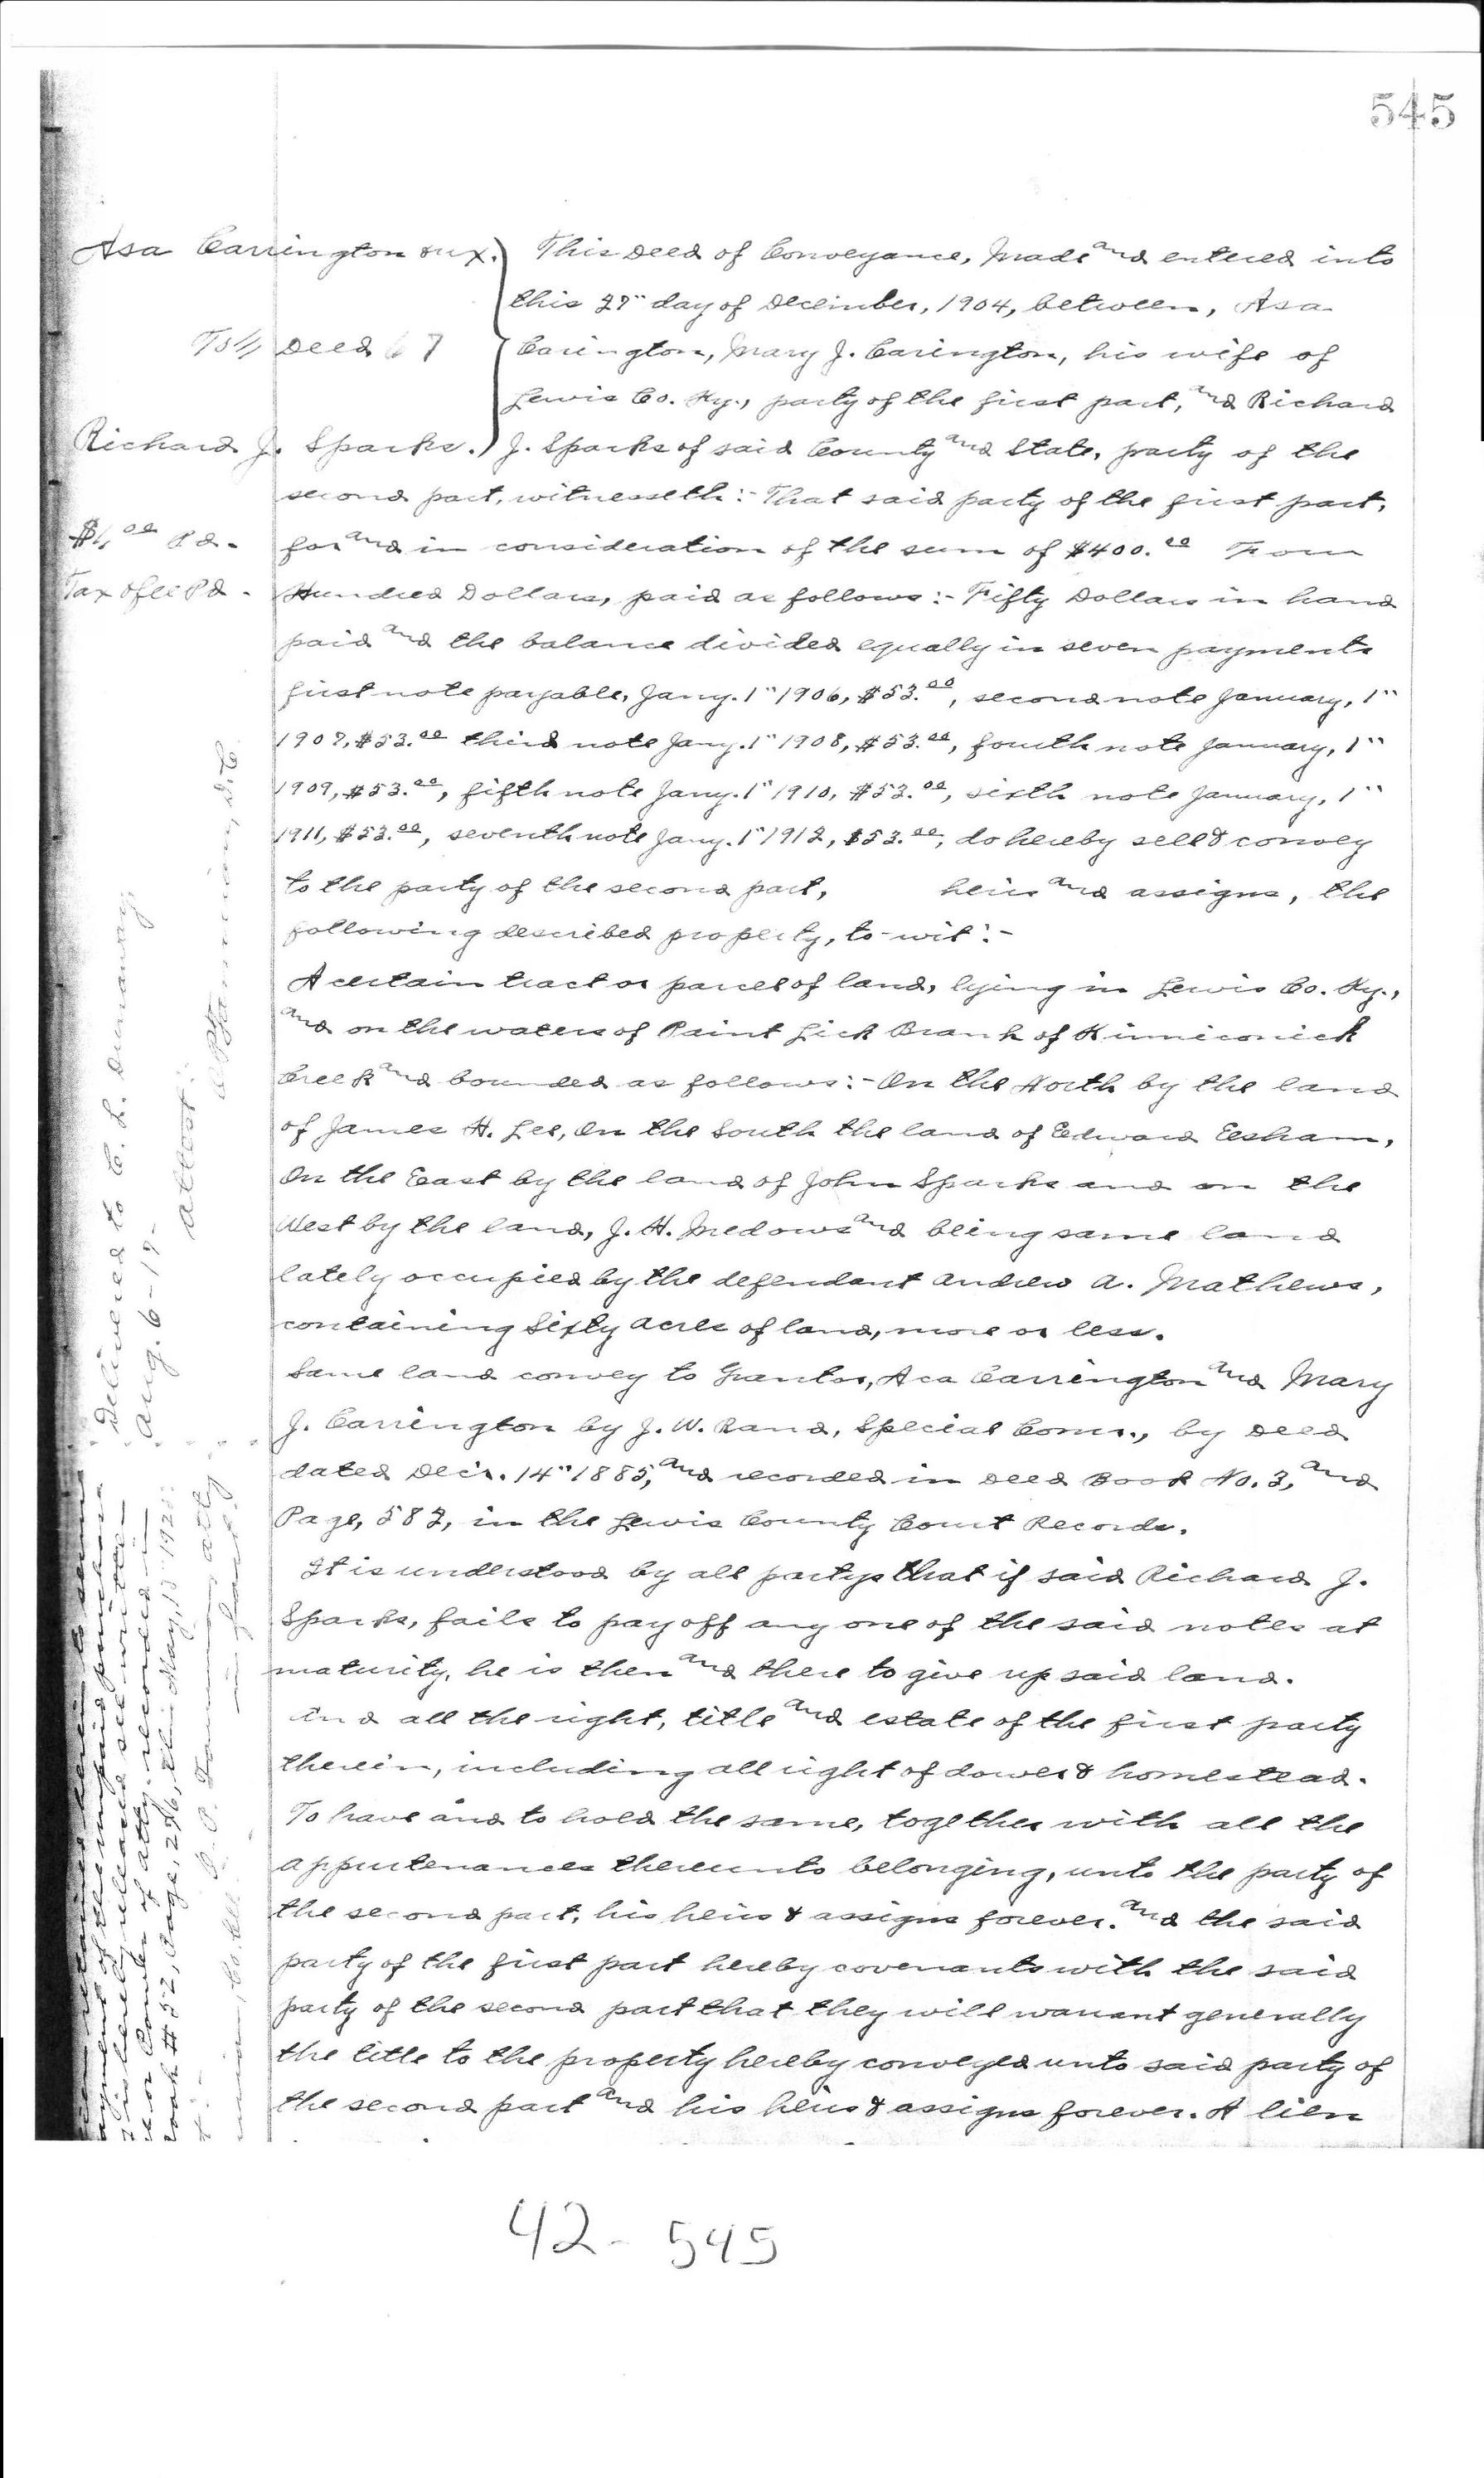 545
Asa Carrington & ux.
To // Deed 67
Richard J. Sparks.
$1.00 Pd.
Tax & fee Pd.
This Deed of Conveyance, Made and entered into
this 27" day of December, 1904, between, Asa
Carington, Mary J. Carington, his wife of
Lewis Co. Ky., party of the first part, and Richard
J. Sparks of said County and State, party of the
second part, witnesseth:- That said party of the first part,
for and in consideration of the sum of $400.00
Hundred Dollars, paid as follows:- Fifty Dollars in hand
paid and the balance divided equally in seven payments
first note payable, Jany. 1" 1906, $53.00, second note January, 1"
1907, $53.00 third note Jany. 1" 1908, $53.00, fourth note January, 1"
1909, $53.00, fifth note Jany. 1" 1910, $53.00, sixth note January, 1"
1911, $53.00, seventh note Jany. 1" 1912, $53.00, do hereby sell & convey
to the party of the second part, heirs and assigns, the
following described property, to-wit:-
A certain tract or parcel of land, lying in Lewis Co. Ky.,
and on the waters of Paint Lick Branh of Kinniconick
Creek and bounded as follows:- On the North by the land
of James H. Lee, On the South the land of Edward Eesham,
On the East by the land of John Sparks and on the
West by the land, J. H. Medows and being same land
lately occupied by the defendant Andrew A. Mathews,
containing Sixty acres of land, more or less.
Same land convey to Grantor, Aca Carrington and Mary
J. Carrington by J. W. Rand, Special Comr., by Deed
dated Decr. 14" 1885, and recorded in Deed Book No. 3, and
Page, 582, in the Lewis County Court Records.
It is understood by all partys that if said Richard J.
Sparks, fails to pay off any one of the said notes at
maturity, he is then and there to give up said land.
and all the right, title and estate of the first party
therein, including all right of dower & homestead.
To have and to hold the same, together with all the
appurtenances thereunto belonging, unto the party of
the second part, his heirs & assigns forever. And the said
party of the first part hereby covenants with the said
party of the second part that they will warrant generally
the title to the property hereby conveyed unto said party of
the second part and his heirs & assigns forever. A lien
Delivered to C. L. Dummay
Aug. 6-19-
Attest:
is hereby released see written
of atty. recorded in
Book #52, Page, 256, this May, 15" 192
42-545